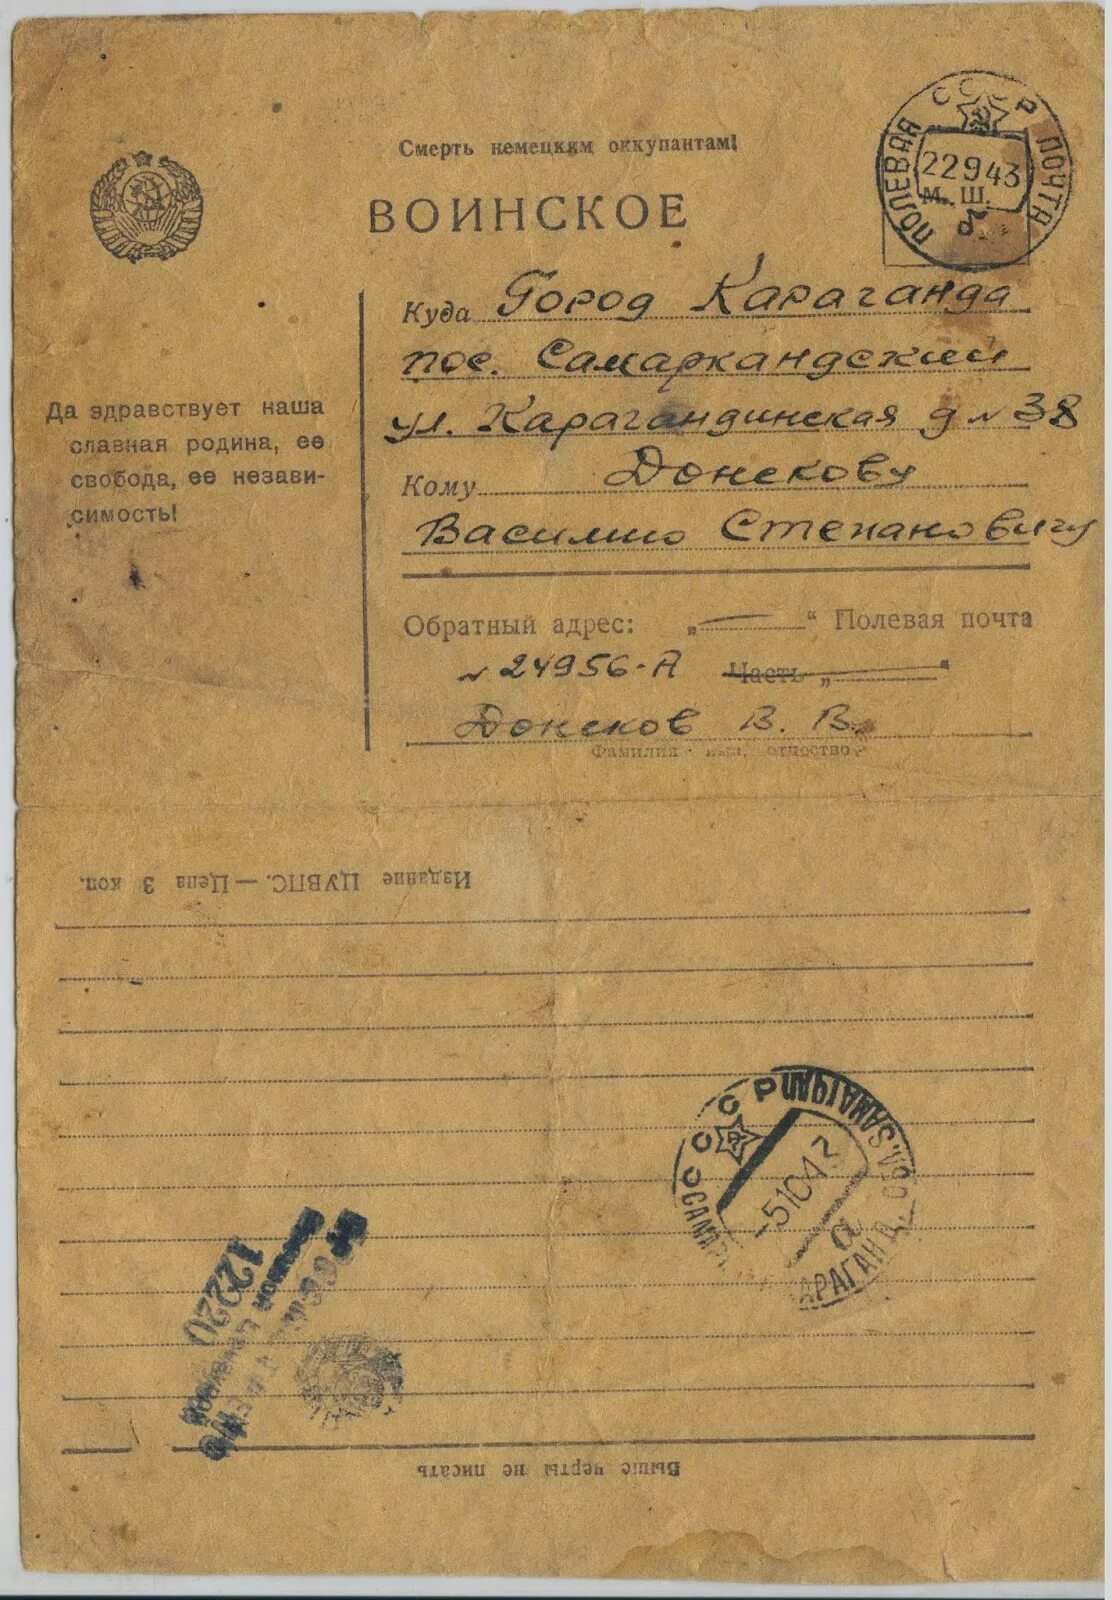 Смерть немецким оккупантам!
ВОИНСКОЕ
СССР
ПОЛЕВАЯ ПОЧТА
22 9 43
М. Ш.
Да здравствует наша
славная родина, ее
свобода, ее незави-
симость!
Куда Город Караганда
пос. Самаркандский
ул. Карагандинская д № 38
Кому Донскову
Василию Степановичу
Обратный адрес: „ — “ Полевая почта
№ 24956-А Часть „ “
Донсков В. В.
Фамилия, имя, отчество
Издание ЦУВПС. — Цена 3 коп.
СССР
-5 10 4
а
12220
Выше черты не писать